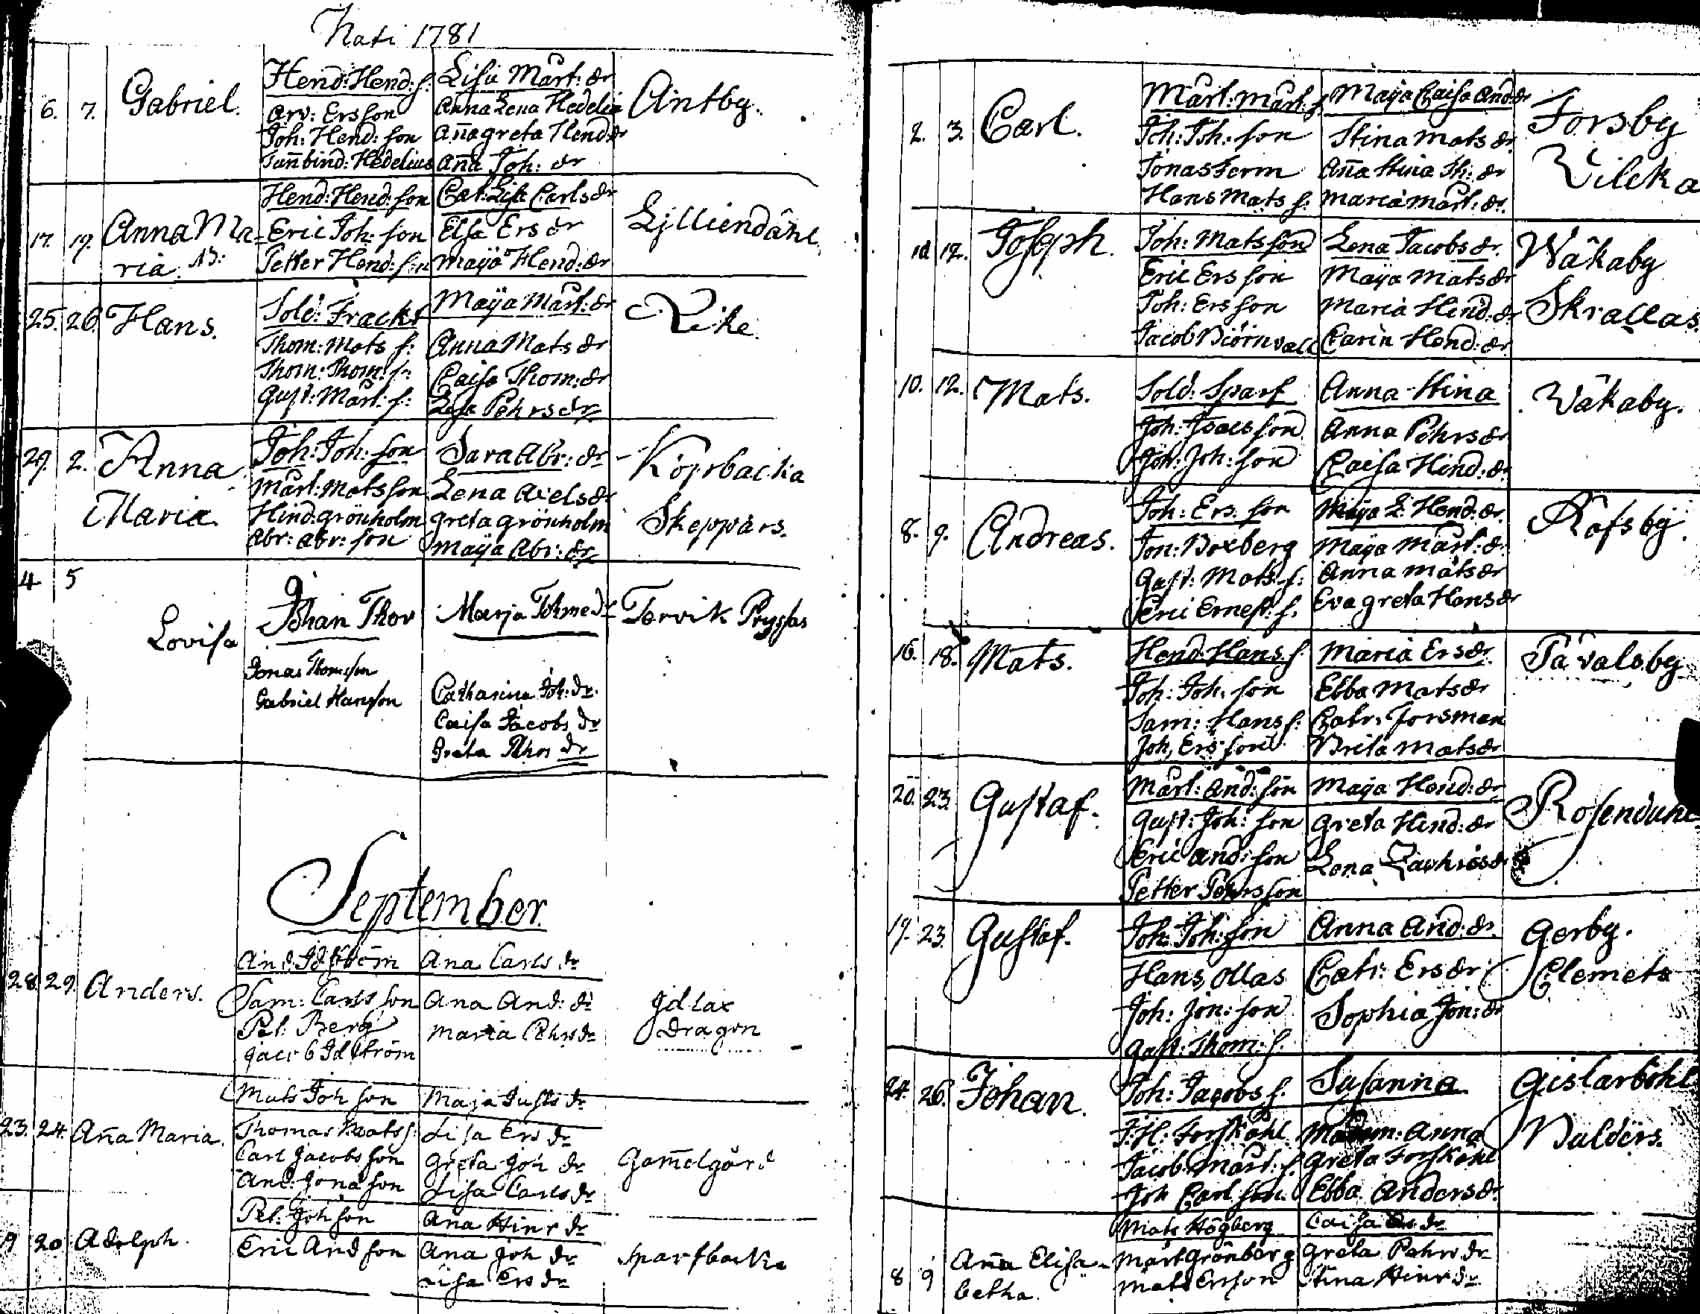 Nati 1781
6. 7. Gabriel. Hend: Hend: s. Lisa Mårt: dr Antby.
Arv: Ersson Anna Lena Hedelia
Joh: Hend: son Aña greta Hend: dr
Hedelius Aña Joh: dr
17. 19. Anna Ma- Hend: Hend: son Cat: Lisa Carls dr Lilliendähl
ria Eric Joh: son Elsa Ers dr
Petter Hend: son Maÿa Hend: dr
25. 26. Hans. Sold: Maÿa Mårt: dr
Thom: Mats s: Anna Mats dr
Thom: Thom: s: Caisa Thom: dr
Gust: Mårt: s: Lisa Pehrs dr
29. 2. Anna Joh: Joh: son Sara Abr: dr
Maria Mårt: Mats son Lena Axels dr
Hind. grönholm greta grönholm Skeppars.
Abr: Abr: son Maÿa Abr: dr
4 5
Lovisa Johan Thor Marja Tervik
Jonas Thomson
Gabriel Hanson Catharina Joh: dr
Caisa Jacobs dr
Greta dr
September.
28. 29. Anders. And: Idström Ana Carls dr
Sam: Carls son Ana And: dr Idlax
Pet: Berg Maria Pehrs dr Dragon
Jacob Idström
23. 24. Aña Maria. Mats Joh son Maja Gusts dr
Thomas Mats s: Lisa Ers dr
Carl Jacobs son Greta Joh dr Gam̃elgård
And: Jona son Lisa Carls dr
19 20 Adolph. Pet: Joh son Ana Hinr dr
Eric And son Ana Joh dr Sparfbacka
Lisa Ers dr
2. 3. Carl. Mårt: Mårt: s. Maÿa Caisa And: dr Forsby
Joh: Joh: son Stina Mats dr
Jonas Ferm Aña Stina Th: dr
Hans Mats s: Maria Mårt: dr
10. 12. Joseph. Joh: Matsson Lena Jacobs dr Wåkaby
Eric Ersson Maÿa Mats dr
Joh: Ersson Maria Hend: dr Skrallas
Jacob Biörnvall Carin Hend: dr
10. 12. Mats. Sold: Sparf Anna Stina Wåkaby.
Joh: Isacsson Anna Pehrs dr
Joh: Joh: son Caisa Hind: dr
8. 9. Andreas. Joh: Ers son Maÿa L: Hend: dr
Jon: Boxberg Maÿa Mårt: dr
Gust: Mats s: Anna Mats dr
Eric Ernest: s. Eva greta Hans dr
16. 18. Mats. Hend: Hans s. Maria Ers dr
Joh: Joh: son Ebba Mats dr
Sam: Hans s: Catr: Forsman
Joh: Ersson Brita Mats dr
20. 23. Gustaf. Mårt: And: son Maÿa Hend: dr
Gust: Joh: son Greta Hind: dr
Eric And: son Lena
Petter Pehrsson
19. 23. Gustaf. Joh: Joh: son Anna And: dr Gerby.
Hans Ollas Catr: Ers dr Clemets
Joh: Jon: son Sophia Jon: dr
Gust: Thom: s.
24. 26. Johan. Joh: Jacobs s. Susanna
J: H: Forskåhl Mam: Anna
Jacob Mårt: s. Greta Forskåhl
Joh Carl son Ebba Anders dr
8 9 Mats Högberg Caisa dr
Aña Elisa- Mårt Grönberg Greta Pehrs dr
betha. Mats Erson Stina Hinr dr